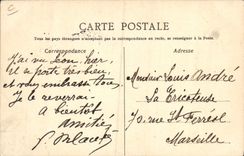 CARTE POSTALE
Tous les pays étrangers n'acceptent pas la correspondance au recto, se renseigner à la Poste.
Correspondance
Adresse
J'ai vu Léon, hier,
il se porte très bien
et vous embrasse tous.
Je le reverrai
à bientôt
Amitiés
Monsieur Louis André
La Tricoteuse
70, rue St Ferréol
Marseille